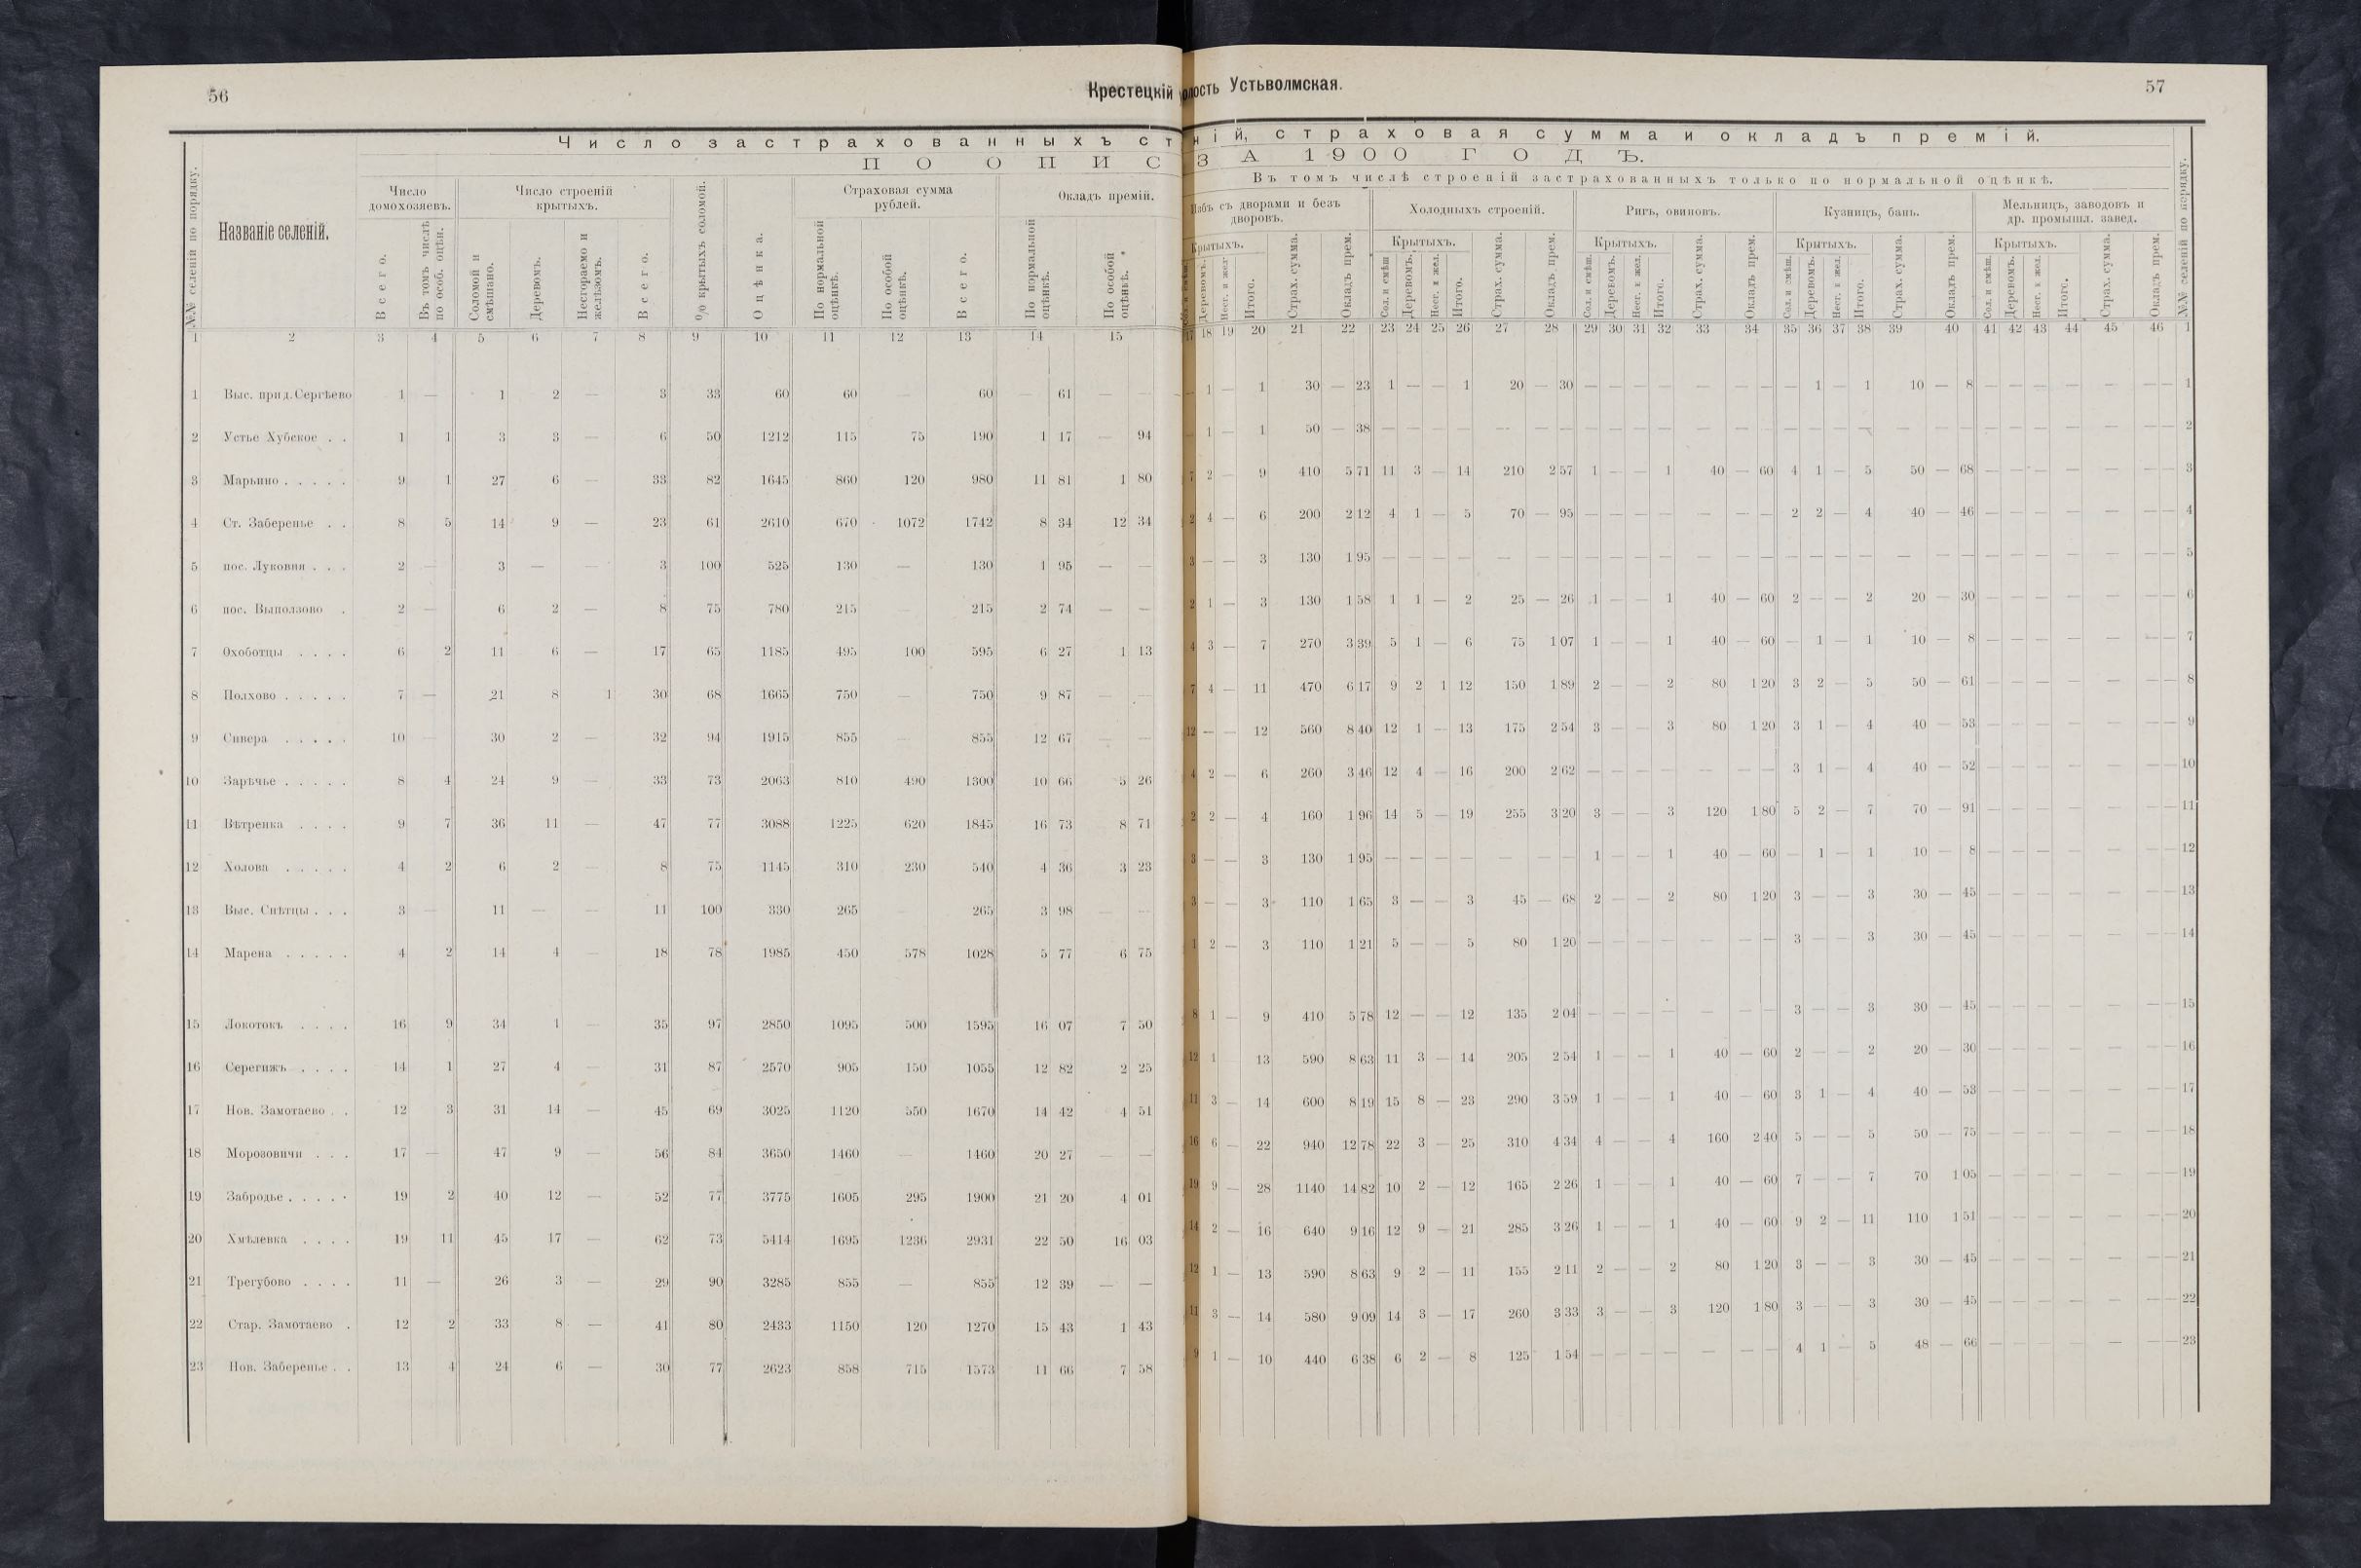 56
Крестецкій
Число застрахованныхъ ст
ПО ОПИС
№№ селеній по порядку.
Названіе селеній.
Число домохозяевъ.
Число строеній крытыхъ.
% крытыхъ соломой.
Оцѣнка.
Страховая сумма рублей.
Окладъ премій.
Всего.
Въ томъ числѣ по особ. оцѣн.
Соломой и смѣшано.
Деревомъ.
Несгораемо и желѣзомъ.
Всего.
По нормальной оцѣнкѣ.
По особой оцѣнкѣ.
Всего.
По нормальной оцѣнкѣ.
По особой оцѣнкѣ.
1 2 3 4 5 6 7 8 9 10 11 12 13 14 15
1 Выс. при д. Сергѣево 1 — 1 2 — 3 33 60 60 — 60 — 61 — —
2 Устье Хубское . . 1 1 3 3 — 6 50 1212 115 75 190 1 17 — 94
3 Марьино . . . . . 9 1 27 6 — 33 82 1645 860 120 980 11 81 1 80
4 Ст. Заберенье . . 8 5 14 9 — 23 61 2610 670 1072 1742 8 34 12 34
5 пос. Луковня . . . 2 — 3 — — 3 100 525 130 — 130 1 95 — —
6 пос. Выползово . 2 — 6 2 — 8 75 780 215 — 215 2 74 — —
7 Охоботцы . . . . 6 2 11 6 — 17 65 1185 495 100 595 6 27 1 13
8 Полхово . . . . . 7 — 21 8 1 30 68 1665 750 — 750 9 87 — —
9 Сивера . . . . . 10 — 30 2 — 32 94 1915 855 — 855 12 67 — —
10 Зарѣчье . . . . . 8 4 24 9 — 33 73 2063 810 490 1300 10 66 5 26
11 Вѣтренка . . . . 9 7 36 11 — 47 77 3088 1225 620 1845 16 73 8 71
12 Холова . . . . . 4 2 6 2 — 8 75 1145 310 230 540 4 36 3 23
13 Выс. Снѣтцы . . . 3 — 11 — — 11 100 330 265 — 265 3 98 — —
14 Марена . . . . . 4 2 14 4 — 18 78 1985 450 578 1028 5 77 6 75
15 Локотокъ . . . . 16 9 34 1 — 35 97 2850 1095 500 1595 16 07 7 50
16 Серегижъ . . . . 14 1 27 4 — 31 87 2570 905 150 1055 12 82 2 25
17 Нов. Замотаево . . 12 3 31 14 — 45 69 3025 1120 550 1670 14 42 4 51
18 Морозовичи . . . 17 — 47 9 — 56 84 3650 1460 — 1460 20 27 — —
19 Забродье . . . . . 19 2 40 12 — 52 77 3775 1605 295 1900 21 20 4 01
20 Хмѣлевка . . . . 19 11 45 17 — 62 73 5414 1695 1236 2931 22 50 16 03
21 Трегубово . . . . 11 — 26 3 — 29 90 3285 855 — 855 12 39 — —
22 Стар. Замотаево . 12 2 33 8 — 41 80 2433 1150 120 1270 15 43 1 43
23 Нов. Заберенье . . 13 4 24 6 — 30 77 2623 858 715 1573 11 66 7 58
олость Устьволмская.
57
ній, страховая сумма и окладъ премій.
ЗА 1900 ГОДЪ.
Въ томъ числѣ строеній застрахованныхъ только по нормальной оцѣнкѣ.
Избъ съ дворами и безъ дворовъ.
Холодныхъ строеній.
Ригъ, овиновъ.
Кузницъ, бань.
Мельницъ, заводовъ и др. промышл. завед.
№№ селеній по порядку.
Крытыхъ. Крытыхъ. Крытыхъ. Крытыхъ. Крытыхъ.
Деревомъ. Несг. и жел. Итого. Страх. сумма. Окладъ прем.
Сол. и смѣш. Деревомъ. Несг. и жел. Итого. Страх. сумма. Окладъ прем.
Сол. и смѣш. Деревомъ. Несг. и жел. Итого. Страх. сумма. Окладъ прем.
Сол. и смѣш. Деревомъ. Несг. и жел. Итого. Страх. сумма. Окладъ прем.
Сол. и смѣш. Деревомъ. Несг. и жел. Итого. Страх. сумма. Окладъ прем.
17 18 19 20 21 22 23 24 25 26 27 28 29 30 31 32 33 34 35 36 37 38 39 40 41 42 43 44 45 46 1
— 1 — 1 30 — 23 1 — — 1 20 — 30 — — — — — — — — 1 — 1 10 — 8 — — — — — — — 1
— 1 — 1 50 — 38 — — — — — — — — — — — — — — — — — — — — — — — — — — — — 2
7 2 — 9 410 5 71 11 3 — 14 210 2 57 1 — — 1 40 — 60 4 1 — 5 50 — 68 — — — — — — — 3
2 4 — 6 200 2 12 4 1 — 5 70 — 95 — — — — — — — 2 2 — 4 40 — 46 — — — — — — — 4
3 — — 3 130 1 95 — — — — — — — — — — — — — — — — — — — — — — — — — — — — 5
2 1 — 3 130 1 58 1 1 — 2 25 — 26 1 — — 1 40 — 60 2 — — 2 20 — 30 — — — — — — — 6
4 3 — 7 270 3 39 5 1 — 6 75 1 07 1 — — 1 40 — 60 — 1 — 1 10 — 8 — — — — — — — 7
7 4 — 11 470 6 17 9 2 1 12 150 1 89 2 — — 2 80 1 20 3 2 — 5 50 — 61 — — — — — — — 8
12 — — 12 560 8 40 12 1 — 13 175 2 54 3 — — 3 80 1 20 3 1 — 4 40 — 53 — — — — — — — 9
4 2 — 6 260 3 46 12 4 — 16 200 2 62 — — — — — — — 3 1 — 4 40 — 52 — — — — — — — 10
2 2 — 4 160 1 96 14 5 — 19 255 3 20 3 — — 3 120 1 80 5 2 — 7 70 — 91 — — — — — — — 11
3 — — 3 130 1 95 — — — — — — — 1 — — 1 40 — 60 — 1 — 1 10 — 8 — — — — — — — 12
3 — — 3 110 1 65 3 — — 3 45 — 68 2 — — 2 80 1 20 3 — — 3 30 — 45 — — — — — — — 13
1 2 — 3 110 1 21 5 — — 5 80 1 20 — — — — — — — 3 — — 3 30 — 45 — — — — — — — 14
8 1 — 9 410 5 78 12 — — 12 135 2 04 — — — — — — — 3 — — 3 30 — 45 — — — — — — — 15
12 1 13 590 8 63 11 3 — 14 205 2 54 1 — — 1 40 — 60 2 — — 2 20 — 30 — — — — — — — 16
11 3 — 14 600 8 19 15 8 — 23 290 3 59 1 — — 1 40 — 60 3 1 — 4 40 — 53 — — — — — — — 17
16 6 — 22 940 12 78 22 3 — 25 310 4 34 4 — — 4 160 2 40 5 — — 5 50 — 75 — — — — — — — 18
19 9 — 28 1140 14 82 10 2 — 12 165 2 26 1 — — 1 40 — 60 7 — — 7 70 1 05 — — — — — — — 19
14 2 — 16 640 9 16 12 9 — 21 285 3 26 1 — — 1 40 — 60 9 2 — 11 110 1 51 — — — — — — — 20
12 1 — 13 590 8 63 9 2 — 11 155 2 11 2 — — 2 80 1 20 3 — — 3 30 — 45 — — — — — — — 21
11 3 — 14 580 9 09 14 3 — 17 260 3 33 3 — — 3 120 1 80 3 — — 3 30 — 45 — — — — — — — 22
9 1 — 10 440 6 38 6 2 — 8 125 1 54 — — — — — — — 4 1 — 5 48 — 66 — — — — — — — 23